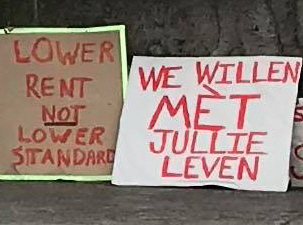 LOWER
RENT
NOT
LOWER
STANDARD
WE WILLEN
MÈT
JULLIE
LEVEN